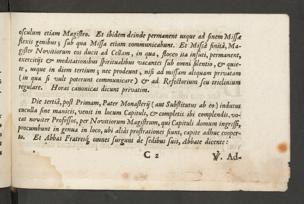 osculum etiam Magistro. Et ibidem deinde permanent usque ad finem Missæ
flexis genibus; sub qua Missa etiam communicabunt. Et Missâ finitâ, Ma-
gister Novitiorum eos ducit ad Cellam, in qua, flocco ita induti, permanent,
exercitijs & meditationibus spiritualibus vacantes sub omni silentio, & quie-
te, usque in diem tertium; nec prodeunt, nisi ad missam aliquam privatam
(in qua si vult poterunt communicare) & ad Refectorium seu triclinium
regulare. Horas canonicas dicunt privatim.
Die tertiâ, post Primam, Pater Monasterij (aut Substitutus ab eo) indutus
cuculla sine manicis, venit in locum Capituli, & completis ibi complendis, vo-
cat noviter Professos, per Novitiorum Magistrum, qui Capituli domum ingressi,
procumbunt in genua in loco, ubi aliàs prostrationes fiunt, capite adhuc cooper-
to. Et Abbas Fratresq; omnes surgunt de sedibus suis, Abbate dicente:
C 2
℣. Ad-